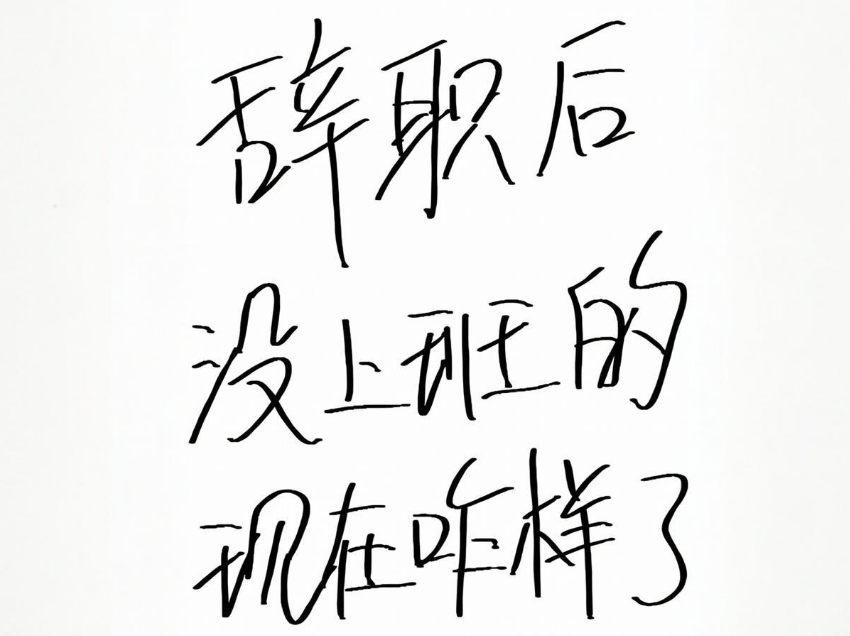 辞职后
没上班的
现在咋样了